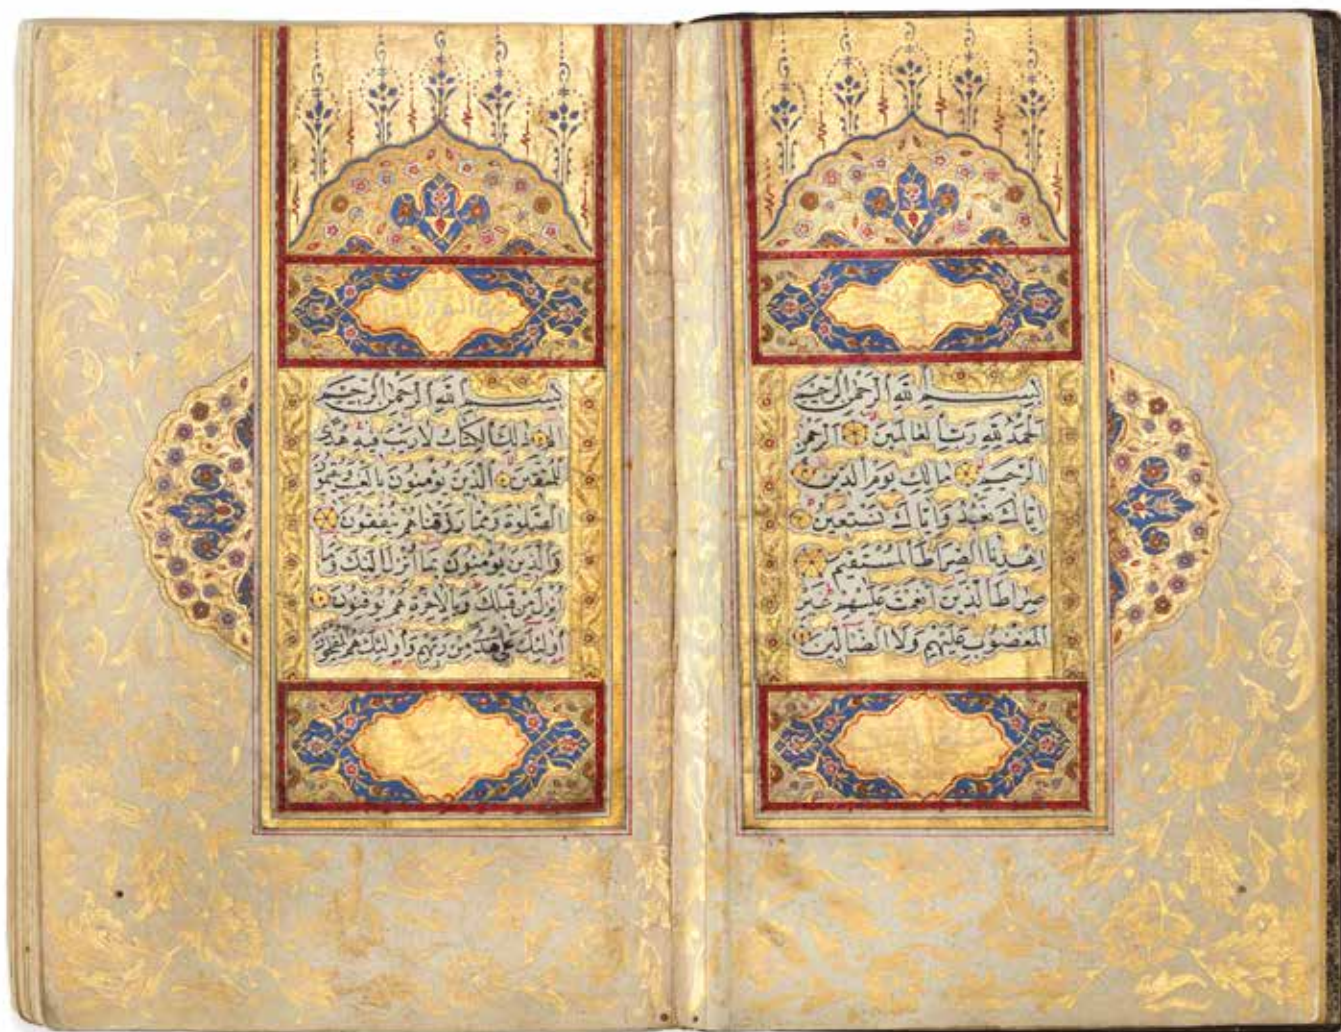 بسم الله الرحمن الرحيم
الحمد لله رب العالمين الرحمن
الرحيم مالك يوم الدين
اياك نعبد واياك نستعين
اهدنا الصراط المستقيم
صراط الذين انعمت عليهم غير
المغضوب عليهم ولا الضالين
بسم الله الرحمن الرحيم
الم ذلك الكتاب لا ريب فيه هدى
للمتقين الذين يؤمنون بالغيب ويقيمون
الصلوة ومما رزقناهم ينفقون
والذين يؤمنون بما انزل اليك وما
انزل من قبلك وبالاخرة هم يوقنون
اولئك على هدى من ربهم واولئك هم المفلحون